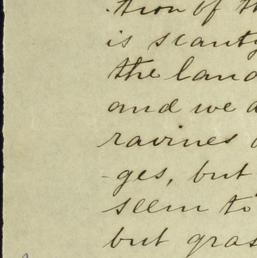 tion of th
is scanty
the land
and we a
ravines
ges, but
seem to
but gras